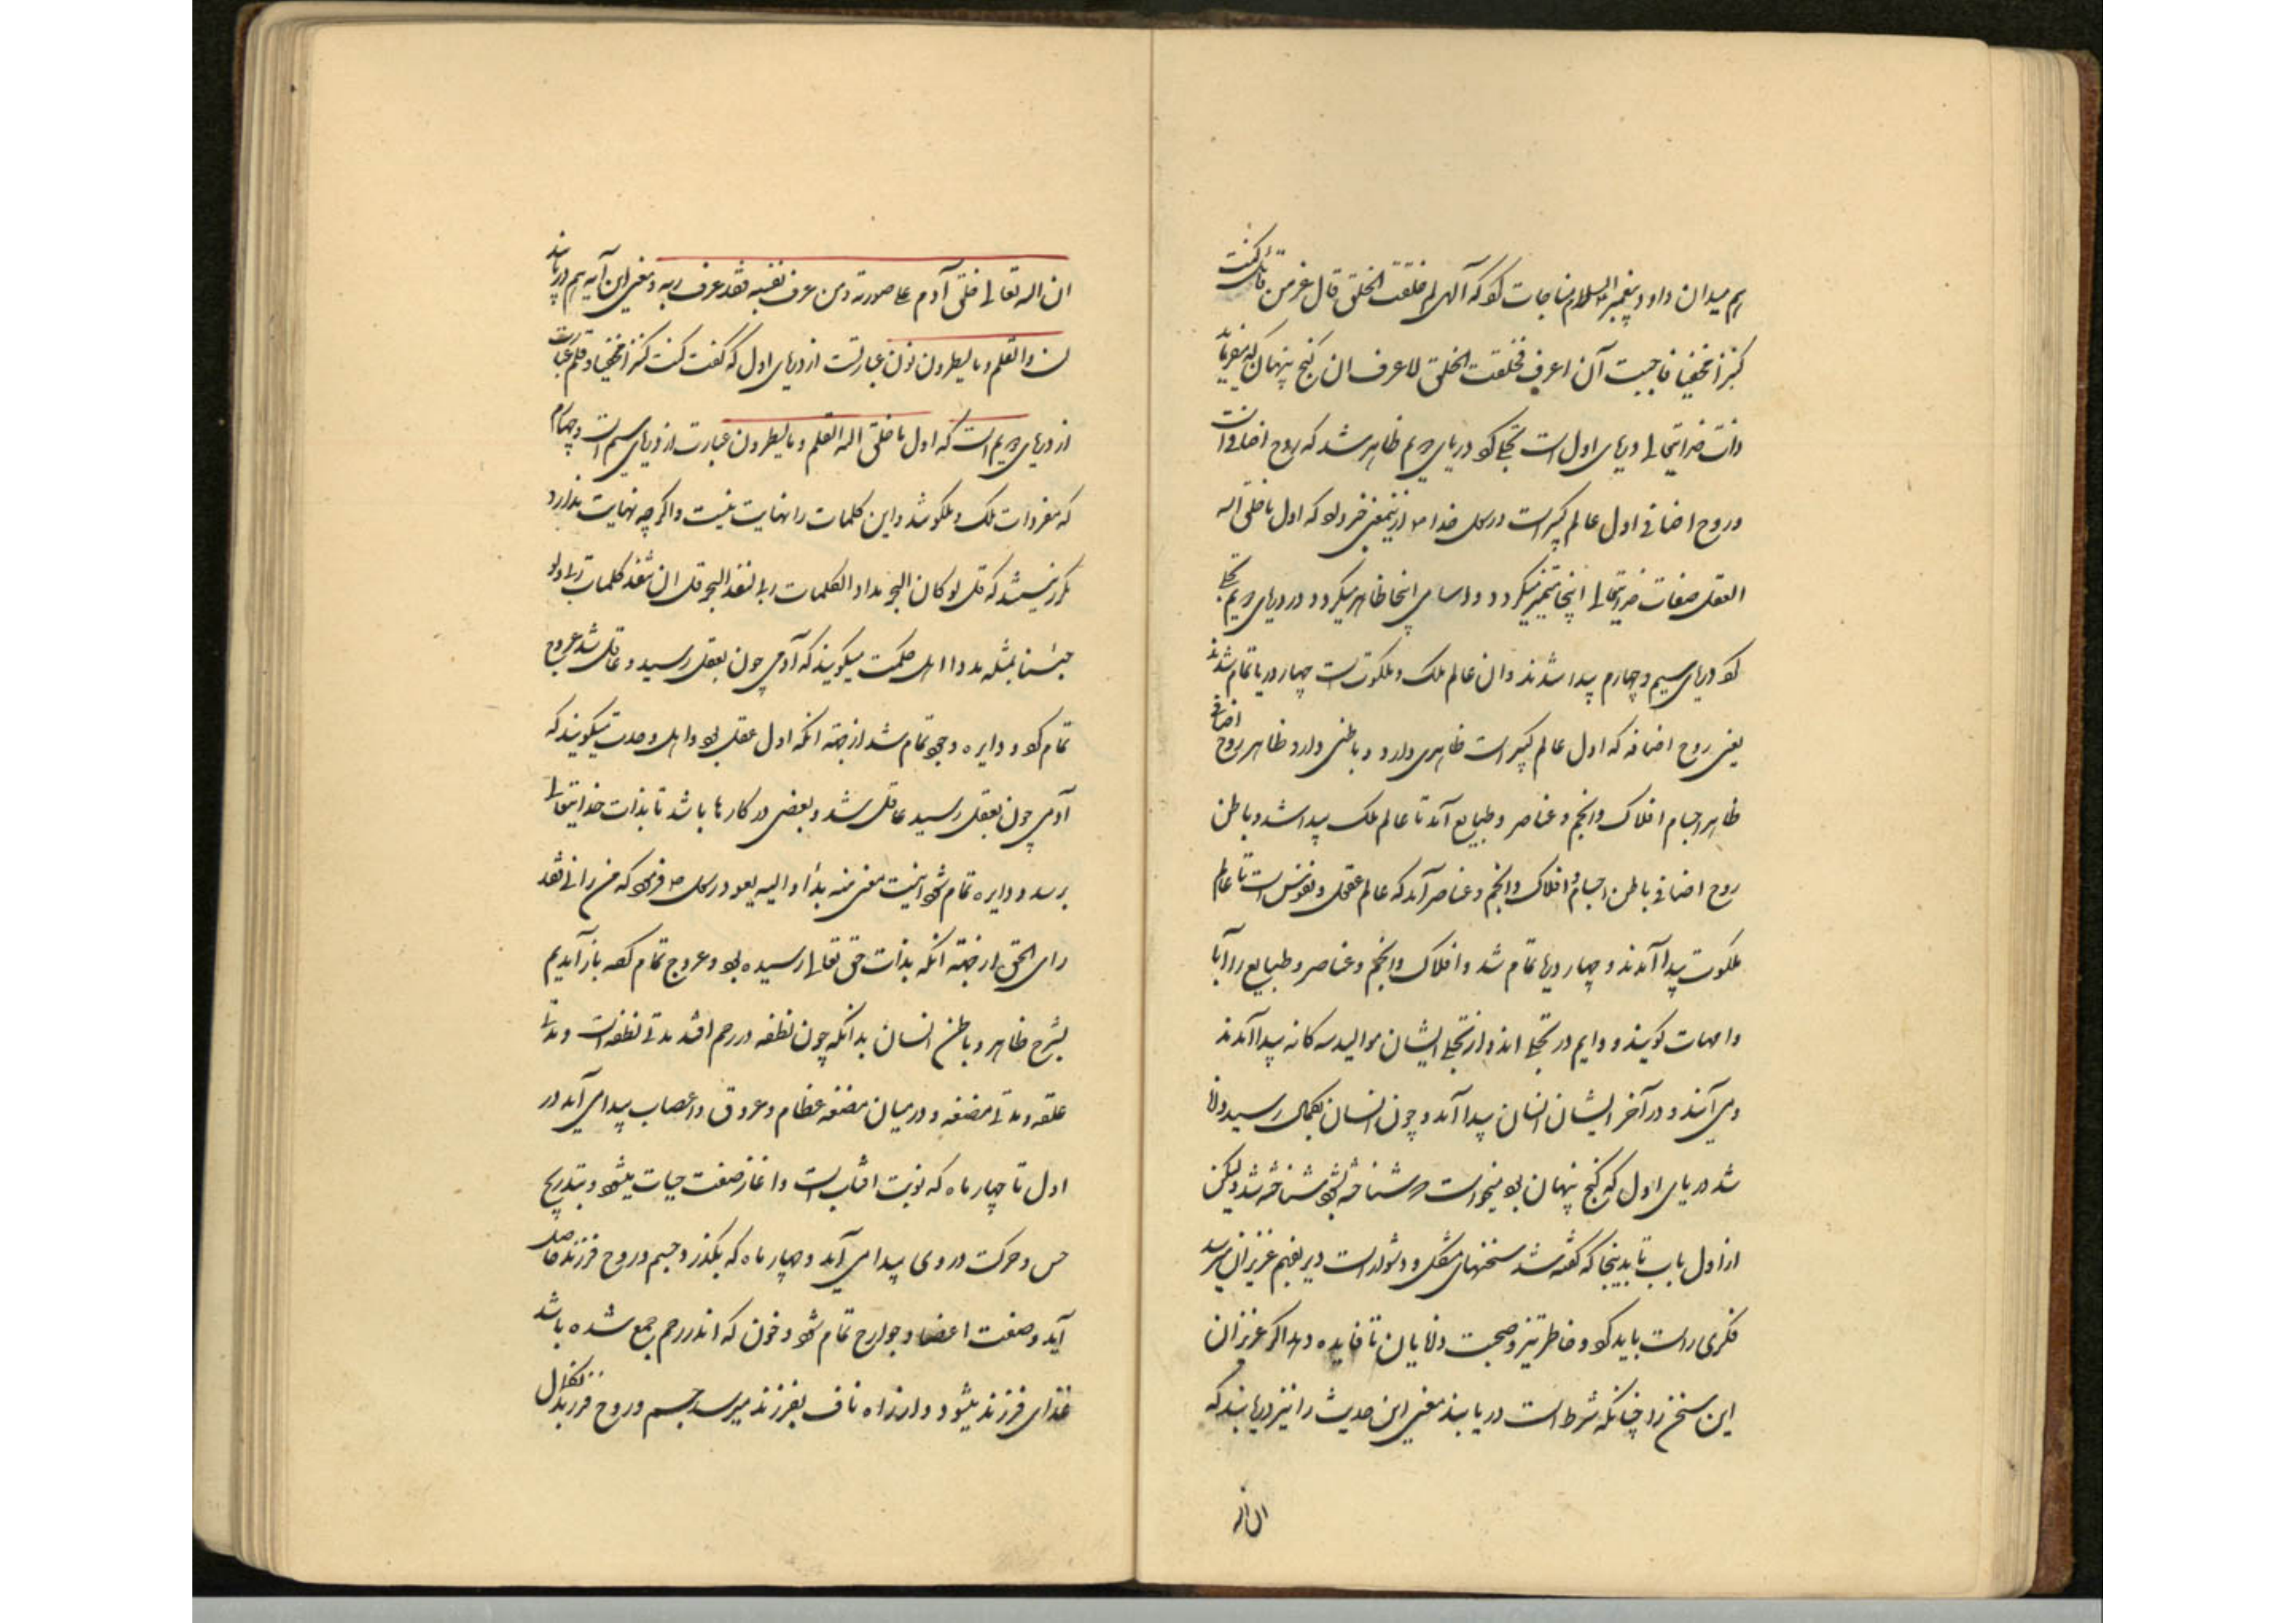 هم میدان داود پیغمبر السلام مناجات کو که آلهی لم خلقت الخلق قال عز من قائل کنت
کنزا مخفیا فاحببت آن اعرف فخلقت الخلق لاعرف ان کنج پنهان که میفرماید
ذات خدایتعالی دریای اول است تجلی کو دریای دویم ظاهر شد که روح اضافی است
و روح اضافی اول عالم کبیر است رسول خدا ص ازینمعنی خبر داد که اول ما خلق اله
العقل صفات خدایتعالی اینجا متمیز میگردد و اسامی اینجا ظاهر میگردد و دریای دویم تجلی
کو دریای سیم و چهارم پیدا شدند و ان عالم ملک و ملکوت است چهار دریا تمام شدند
یعنی روح اضافه که اول عالم کبیر است ظاهری دارد و باطنی دارد ظاهر روح اضافی
ظاهر اجسام افلاک و انجم و عناصر و طبایع آمد تا عالم ملک پیدا شد و باطن
روح اضافی باطن اجسام و افلاک و انجم و عناصر آمد که عالم عقول و نفوس است تا عالم
ملکوت پیدا آمدند و چهار دریا تمام شد و افلاک و انجم و عناصر و طبایع را آبا
و امهات کویند و دایم در تجلی اند و از تجلی ایشان موالید سه کانه پیدا آمدند
و می آیند و در آخر ایشان انسان پیدا آمد و چون انسان بکمال رسید و دانا
شد دریای اول که کنج پنهان بو میخواست که شناخته شو شناخته شد ولیکن
از اول باب تا بدینجا که کفته شد سخنهای مشکل و دشوار است دیر بفهم عزیزان میرسد
فکری راست باید کو و خاطر تیز و صحبت دانایان تا فایده دهد اکر عزیزان
این سخن را چنانکه شرط است دریابند معنی این حدیث را نیز دریابند که
ان اله
ان اله تعالی خلق آدم علی صورته و من عرف نفسه فقد عرف ربه و معنی این آیه هم دریابند
ن والقلم و ما یسطرون نون عبارتست از دریای اول که کفت کنت کنزا مخفیا و قلم عبارت
از دریای دویم است که اول ما خلق اله القلم و ما یسطرون عبارت از دریای سیم است و چهارم
که مفردات ملک و ملکو شد و این کلمات را نهایت نیست و اکر چه نهایت ندارد
مکرر نمیشد که قل لو کان البحر مدادا لکلمات ربی لنفد البحر قبل ان تنفد کلمات ربی ولو
جئنا بمثله مددا اهل حکمت میکویند که آدمی چون بعقل رسید و عاقل شد عروج
تمام کو و دایره وجو تمام شد از جهته انکه اول عقل بو و اهل وحدت میکویند که
آدمی چون بعقل رسید عاقل شد و بعضی در کارها باشد تا بذات خدایتعالی
برسد و دایره تمام شو اینست معنی منه بدأ و الیه یعود رسول ص فرمو که من رانی فقد
رای الحق از جهته انکه بذات حق تعالی رسیده بو و عروج تمام کفه باز آمدیم
بشرح ظاهر و باطن انسان بدانکه چون نطفه در رحم افتد مدتی نطفه است و مدتی
علقه و مدتی مضغه و در میان مضغه عظام و عروق و اعصاب پیدا می آید در
اول تا چهار ماه که نوبت افتاب است و اغاز صفت حیات میشو و بتدریج
حس و حرکت در وی پیدا می آید و چهار ماه که بکذرد جسم و روح فرزند حاصل
آید و صفت اعضا و جوارح تمام شو و خون که اندر رحم جمع شده باشد
غذای فرزند میشود و از راه ناف بفرزند میرسد جسم و روح فرزند